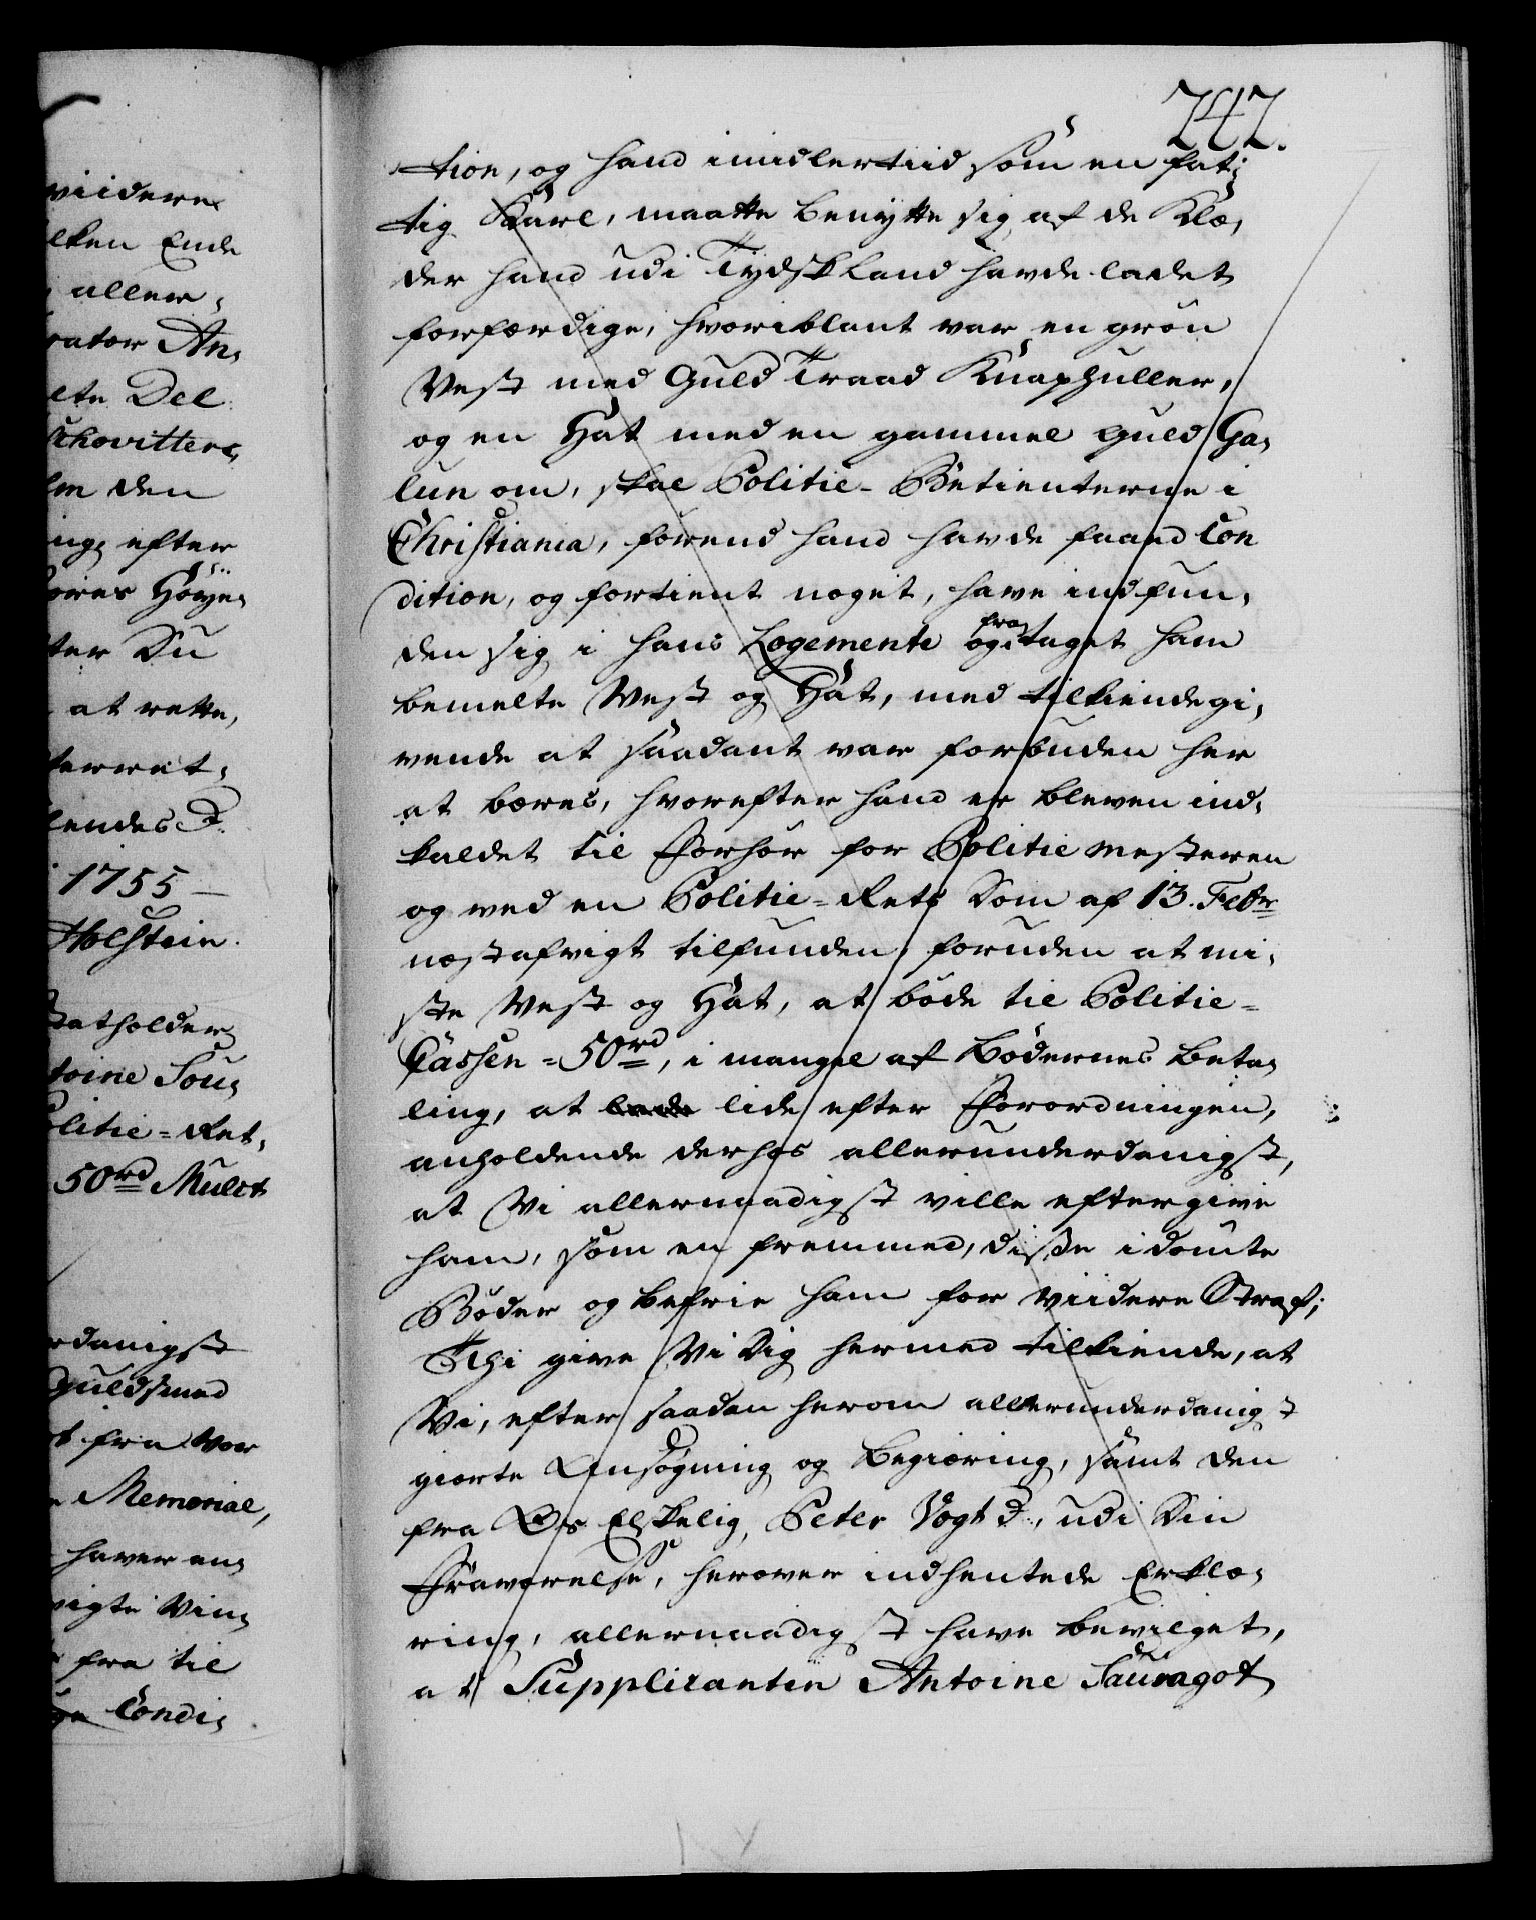 viidere
lken Ende
aller¸
rator An¸
elte Del
schovitters
lm den
ing efter
vores Høye¸
ter Du
at rette,
terret¸
lendes P.
1755 —
Holstein.
Statholder
toine Sou¸
olitie=Ret¸
50rd Mulct
rdanigst
Guldsmed
t fra Vor
Memorial,
haver en¸
vigte Vin¸
fra til
Condi¸
242.
tion, og hand imidlertiid som en fat¸
tig Karl, maatte benytte sig af de Klæ¸
der hand udi Tydskland havde ladet
forfærdige, hvoriblant var en grøn
Vest med Guld Traad Knaphuller,
og en Hat med en gammel Guld Ga¸
lun om, skal Politie-Betienterne i
Christiania, førend hand havde faaed Con
dition, og fortient noget, have indfun¸
den sig i hans Logemente og fra taget ham
bemelte Vest og Hat, med tilkiendegi¸
vende at saadant var forbuden her
at bæres, hvorefter hand er bleven ind¸
kaldet til Forhør for Politiemesteren
og ved en Politie=Rets Dom af 13. Febr
næstafvigt tilfunden, foruden at mi¸
ste Vest og Hat, at bøde til Politie=
Cassen=50rd, i mangel af Bødernes beta¸
ling, at lide efter Forordningen,
anholdende derhos allerunderdanigst,
at Vi allernaadigst ville eftergive
ham, som en fremmed, disse idømte
Bøder og befrie ham for viidere Straf;
Thi give Vi Dig hermed tilkiende, at
Vi, efter saadan herom allerunderdanigst
giorte Ansøgning og Begiæring, samt den
fra Os Elskelig, Peter Vogt P., udi Din
Fraværelse, herover indhentede Erklæ¸
ring, allernaadigst have bevilget,
at Supplicanten Antoine Sauvagot